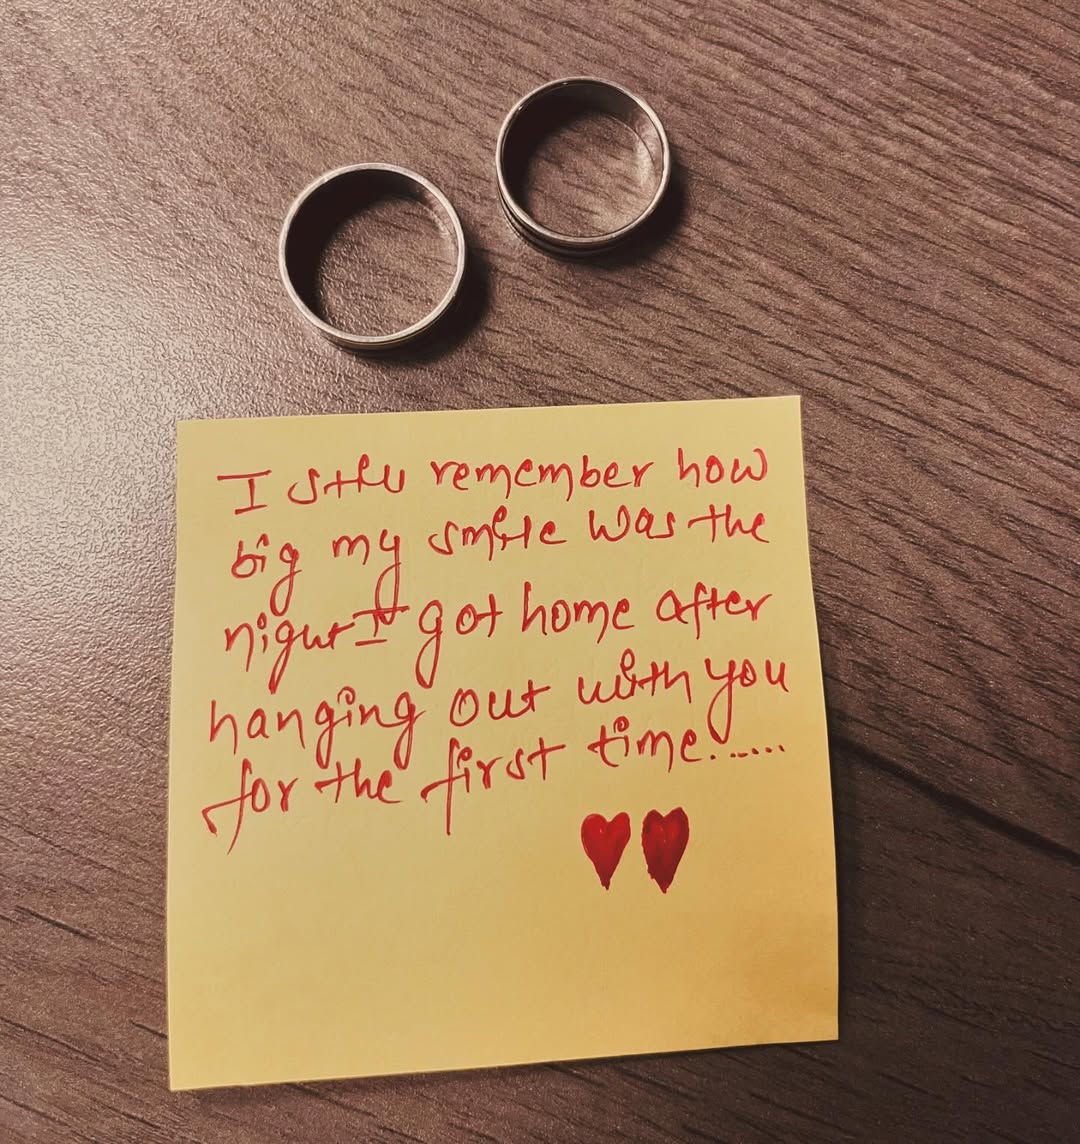 I still remember how
big my smile was the
night I got home after
hanging out with you
for the first time......